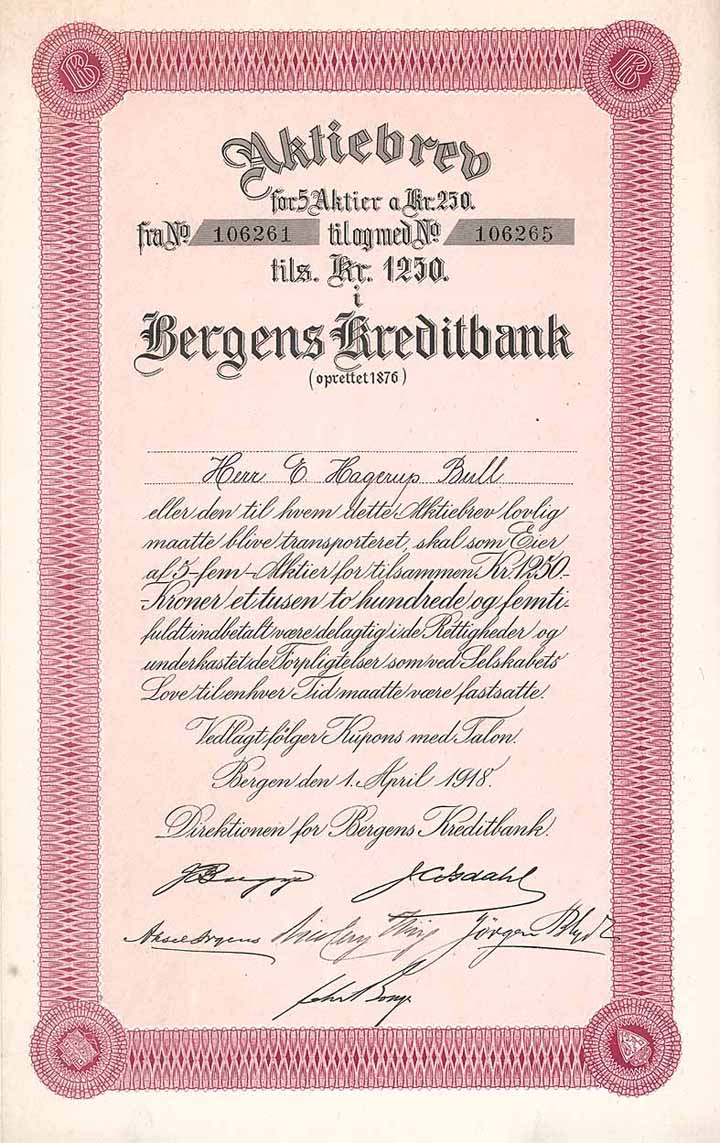 Aktiebrev
for 5 Aktier a Kr. 250.
fra No. 106261 til og med No. 106265
tils. Kr. 1250.
i
Bergens Kreditbank
(oprettet 1876)
Herr E Hagerup Bull
eller den til hvem dette Aktiebrev lovlig
maatte blive transporteret, skal som Eier
af 5-fem-Aktier for tilsammen Kr. 1250-
-Kroner et tusen to hundrede og femti-
fuldt indbetalt være delagtig i de Rettigheder og
underkastet de Forpligtelser som ved Selskabets
Love til enhver Tid maatte være fastsatte.
Vedlagt følger Kupons med Talon.
Bergen den 1. April 1918.
Direktionen for Bergens Kreditbank.
J C Isdahl
Jörgen Blydt